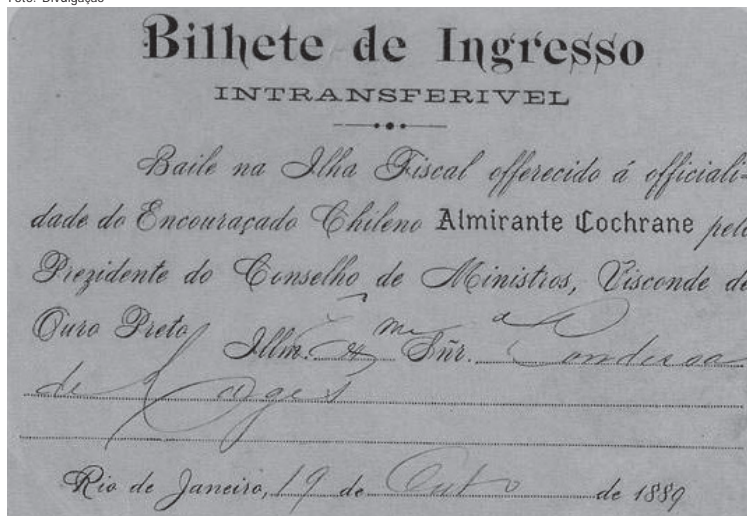 Foto: Divulgação
Bilhete de Ingresso
INTRANSFERIVEL
Baile na Ilha Fiscal offerecido á officiali-
dade do Encouraçado Chileno Almirante Cochrane pelo
Prezidente do Conselho de Ministros, Visconde de
Ouro Preto Illm. Snr. Condessa
de Lages
Rio de Janeiro, 19 de Outo de 1889